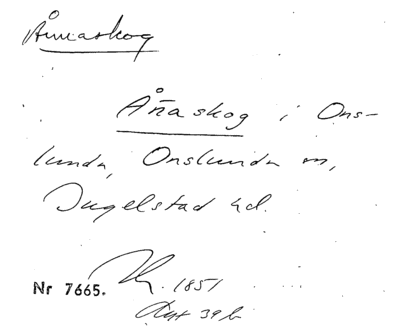 Ånnaskog
Åñaskog i Ons-
lunda, Onslunda sn,
Ingelstad hd.
Nr 7665.
1851